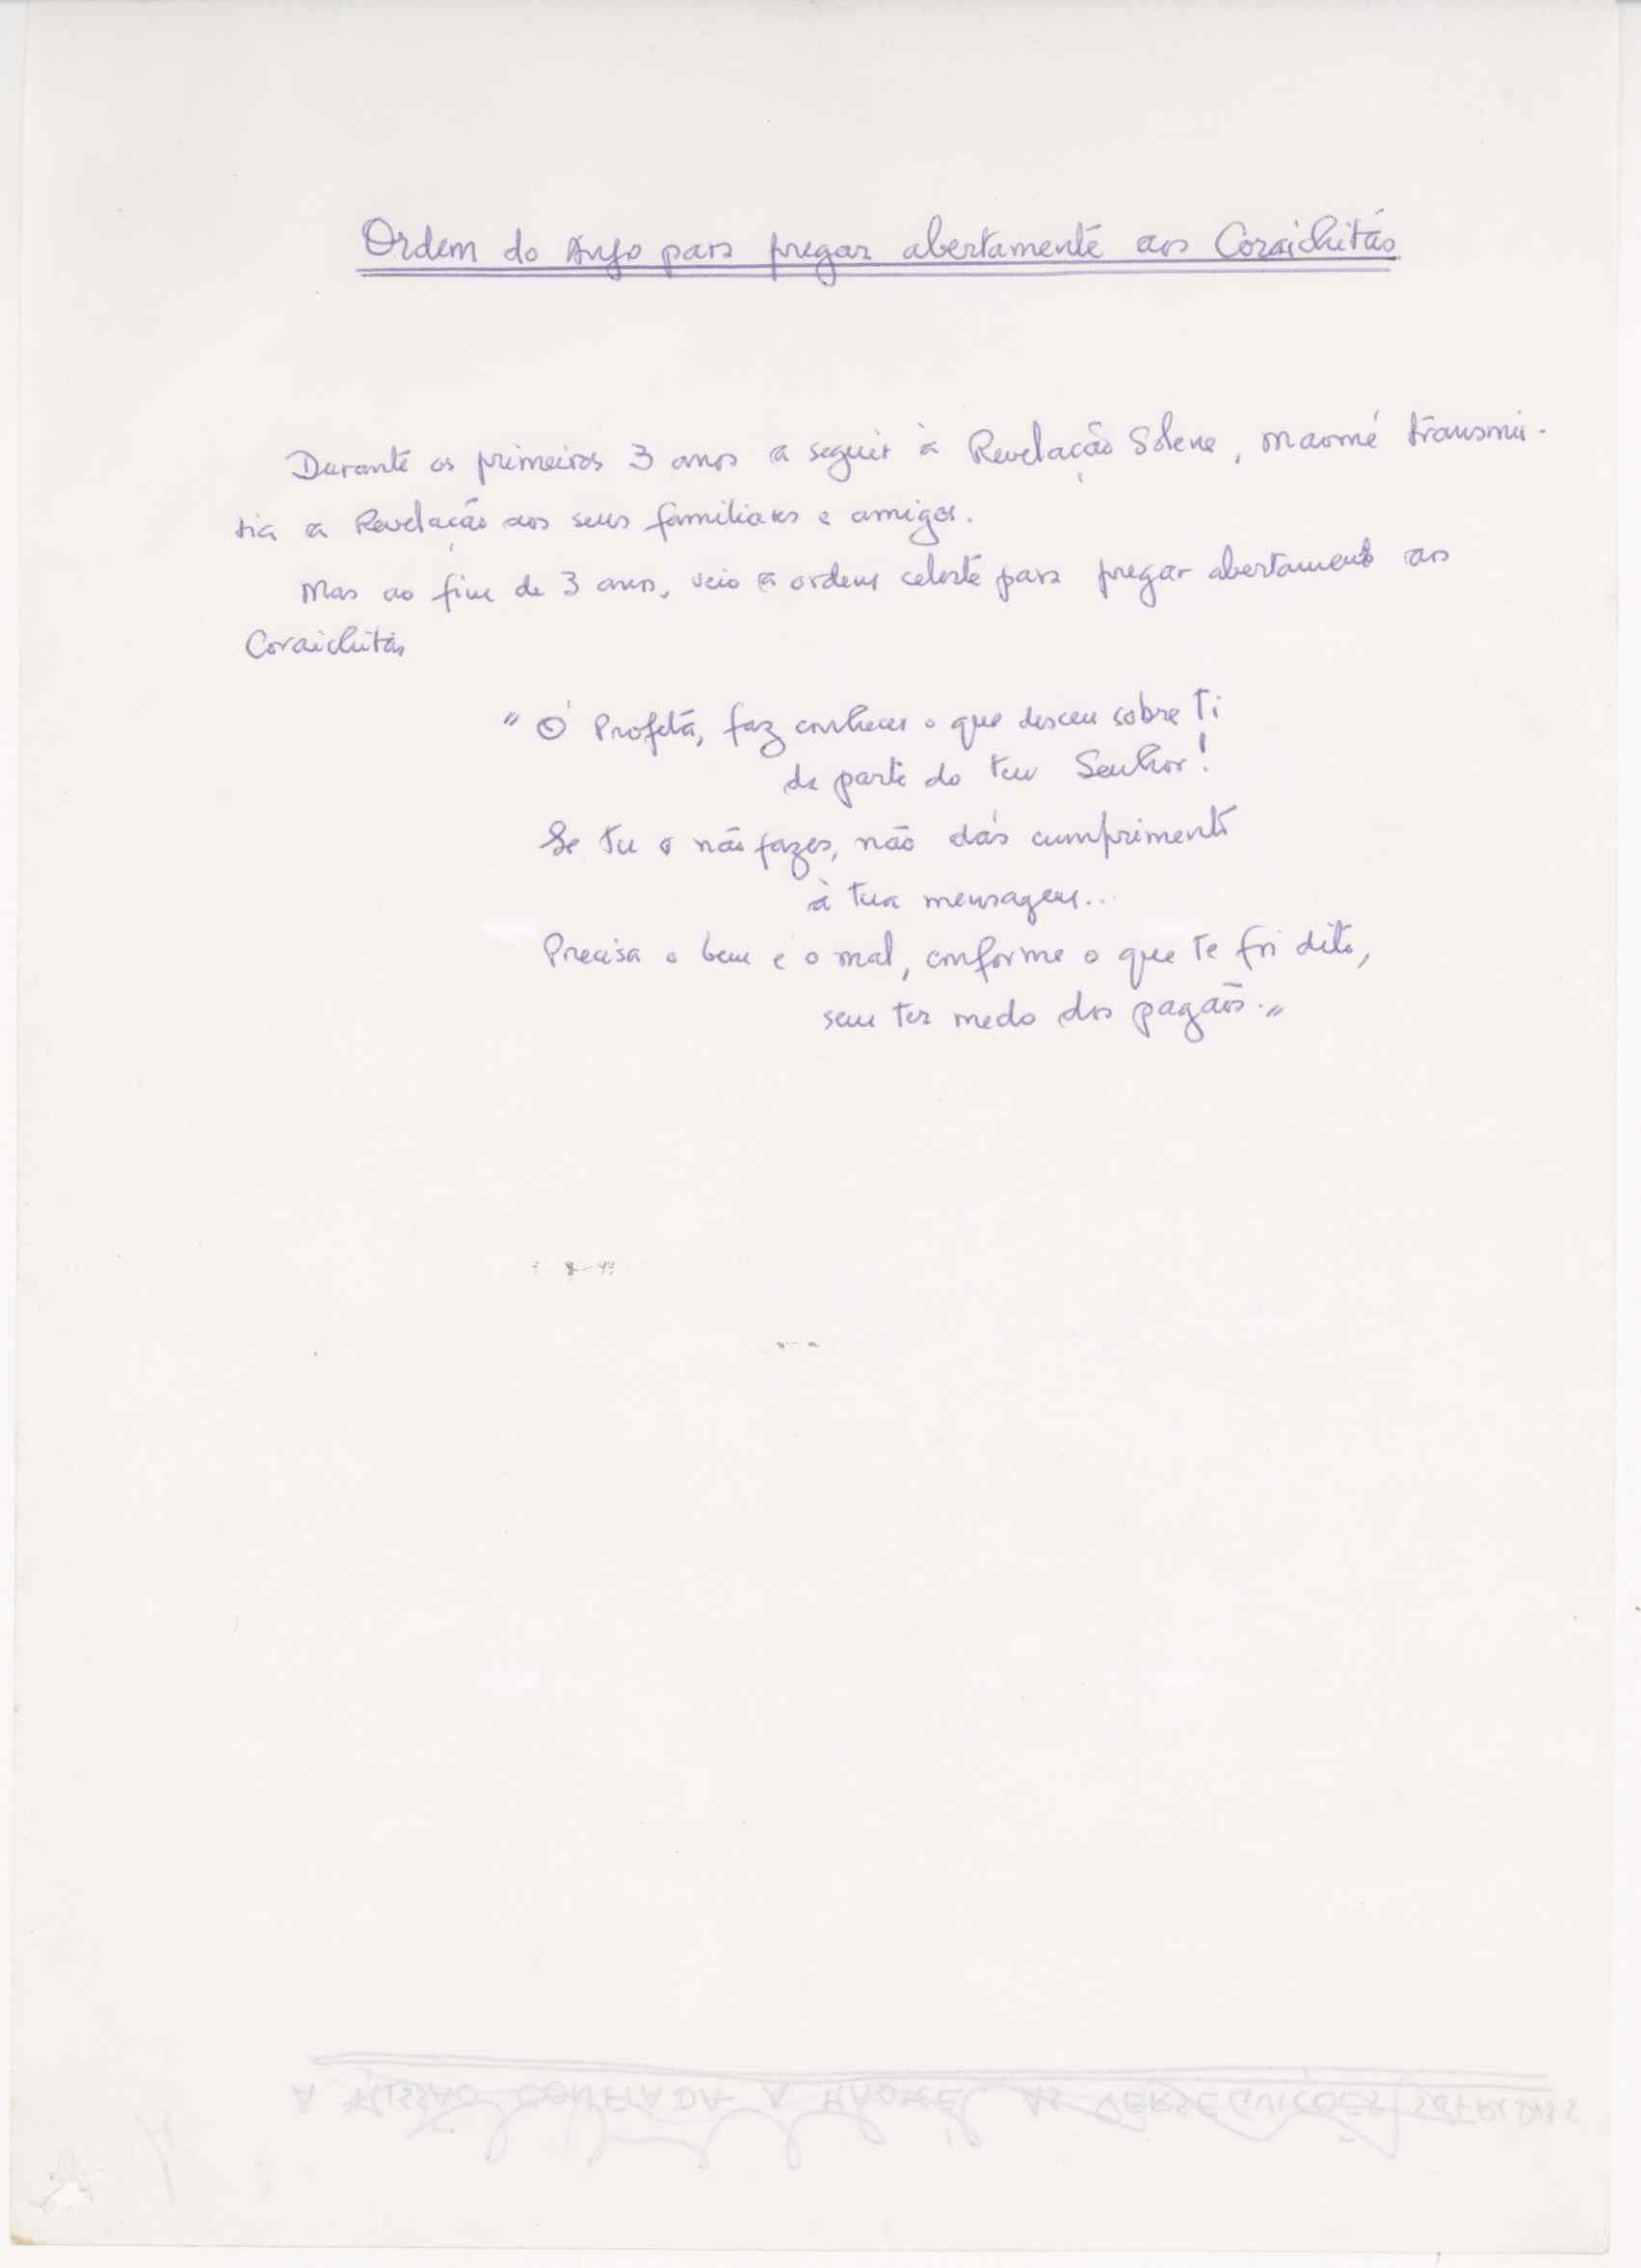 Ordem do Anjo para pregar abertamente aos Coraichitas
Durante os primeiros 3 anos a seguir à Revelação Solene, Maomé transmi-
tia a Revelação aos seus familiares e amigos.
Mas ao fim de 3 anos, veio a ordem celeste para pregar abertamente aos
Coraichitas
"Ó Profeta, faz conhecer o que desceu sobre Ti
da parte do teu Senhor!
Se tu o não fazes, não dás cumprimento
à tua mensagem...
Precisa o bem e o mal, conforme o que te foi dito,
sem ter medo dos pagãos."
A MISSÃO CONFIADA A MAOMÉ AS PERSEGUIÇÕES SOFRIDAS